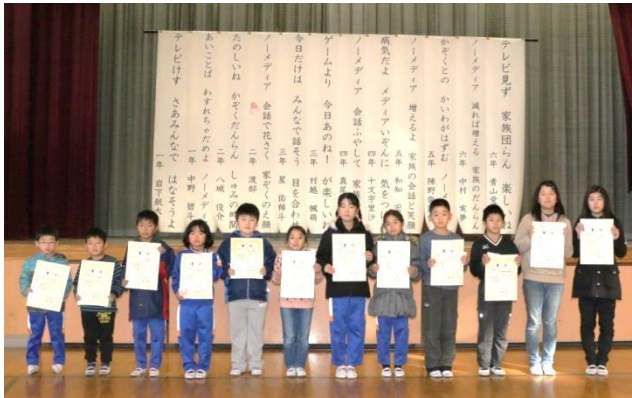 テレビ見ず 家族団らん 楽しいね
六年 青山
ノーメディア 減れば増える 家族のだんらん
六年 中村
かぞくとの かいわがはずむ ノー
五年
ノーメディア 増えるよ 家族の会話と笑顔
五年 和知
病気だよ メディアいぞんに 気をつ
四年 十文字里沙
ノーメディア 会話ふやして 家族
四年
ゲームより 今日あのね! が楽しい
三年 村越 楓萌
今日だけは みんなで話そう 目を合わ
三年 星
ノーメディア 会話で花さく 家ぞくのえ顔
二年 渡部
たのしいね かぞくだんらん しゅみの時間
二年 八城 俊介
あいことば わすれちゃだめよ ノーメディ
一年 中野
テレビけす さあみんなで はなそうよ
一年 岩下航大